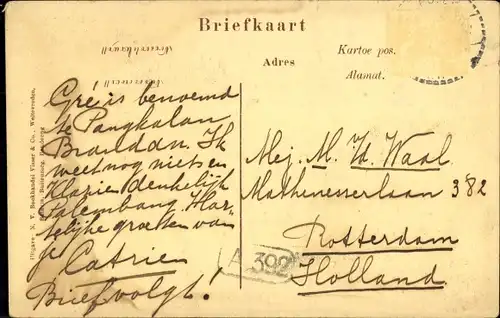 Briefkaart
Kartoe pos.
Adres
Alamat.
Gré is benoemd
te Pangkalan
Branddn. Ik
weet nog niets en
Marie denkelijk
Palembang. Har-
telijke groeten van
je
Catrien
Brief volgt!
Mej. M. v/d. Waal
Mathenesserlaan 382
Rotterdam
Holland.
A 392
Uitgave N. V. Boekhandel Visser & Co., Weltevreden.